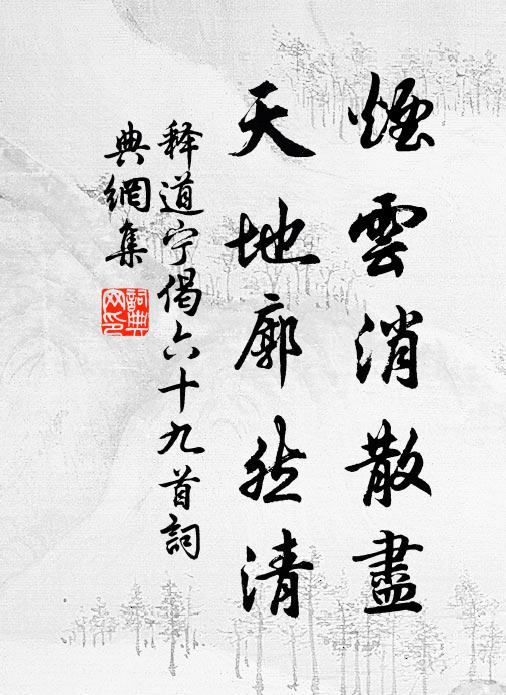 煙雲消散盡
天地廓然清
释道宁偈六十九首詞
典網集
詞典
网印